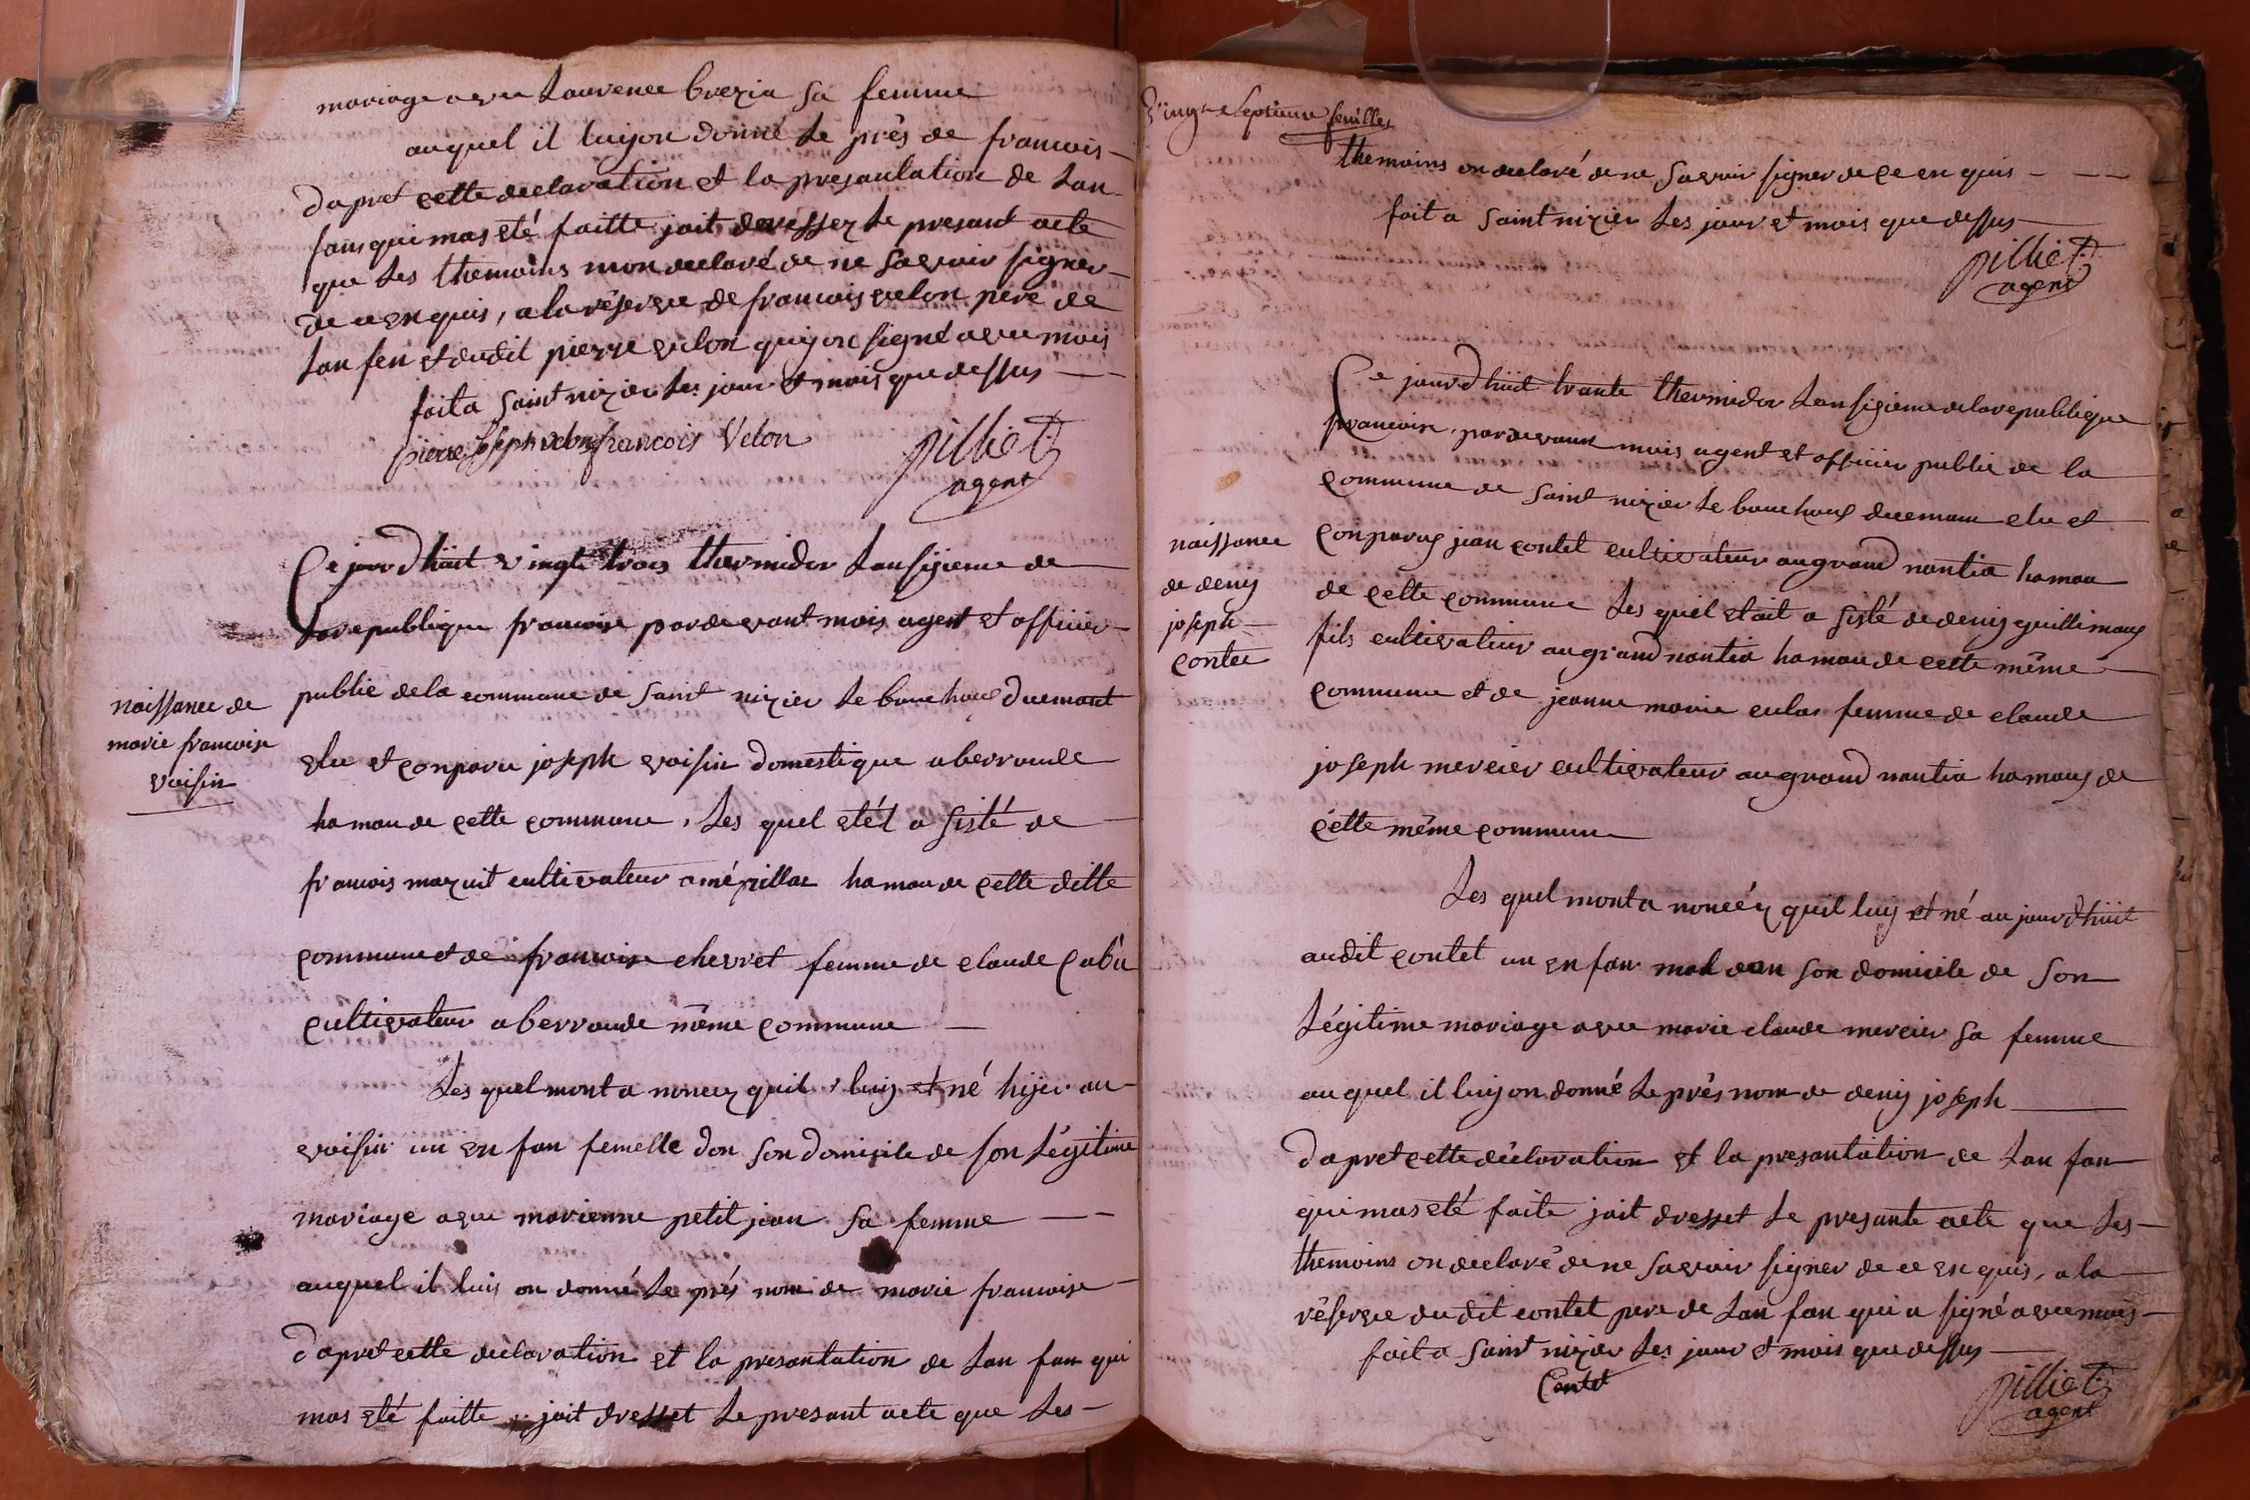 mariage avec Laurence brezia sa femme
auquel il luy on donné le près de francois
dapret cette declaration et la presantation de lan
fans qui mas eté faitte jait dressez le presant acte
que les themoins mon declaré de ne savoir signer
de ce enquis, a la réserve de francois velon pere de
lan fen et dudit pierre velon quiyon signé avec mois
fait a saint nizier les jour et mois que dessus
pierre joseph velon francois Velon
pilliet
agent
Ce jourdhuit vingte trois thermidor lan sizieme de
la republique francoise par devant mois agent et officier
public de la commune de saint nizier le bouchoux ducmant
naissance de
marie francoise
voisin
elu et conparu joseph voisin domestique a berroude
hamau de cette commune, les quel etét a sisté de
francois mazuit cultivateur a mézillac hamau de cette ditte
commune et de francoise chevret femme de claude cabu
cultivateur a berroude même commune
Les quel mont a noncez quil luy et né hijer au
voisin un en fan femelle dan son domicile de son légitime
mariage avec marienne petit jean sa femme
auquel il luis on donné le prés nom de marie francoise
dapret cette declaration et la presantation de lan fan qui
mas eté faitte jait dresset le presant acte que les
vingte septieme feuilles
themoins on declaré de ne savoir signer de ce en quis
fait a saint nizier les jour et mois que dessus
pilliet
agent
Ce jourdhuit trante thermidor lan sizieme de la republique
francoise par devant mois agent et officier public de la
commune de saint nizier le bouchoux ducmant elu et
naissance
de deny
joseph
contet
conparus jean contet cultivateur au grand nantia hamau
de cette commune les quel etait a sisté de deny guillimaux
fils cultivateur au grand nantia hamau de cette même
commune et de jeanne marie culas femme de claude
joseph mercier cultivateur au grand nantia hamaus de
cette même commune
Les quel mont a noncéz quil luy et né au jourdhuit
audit contet un en fan mal dan son domicile de son
légitime mariage avec marie claude mercier sa femme
auquel il luy on donné le prés nom de deny joseph
dapret cette déclaration et la presantation de lan fan
qui mas eté faite jait dresset le presante acte que les
themoins on declaré de ne savoir signer de ce en quis, a la
réserve dudit contet pere de lan fan qui a signé avec mois
fait a saint nizier les jour et mois que dessus
Contet
pilliet
agent